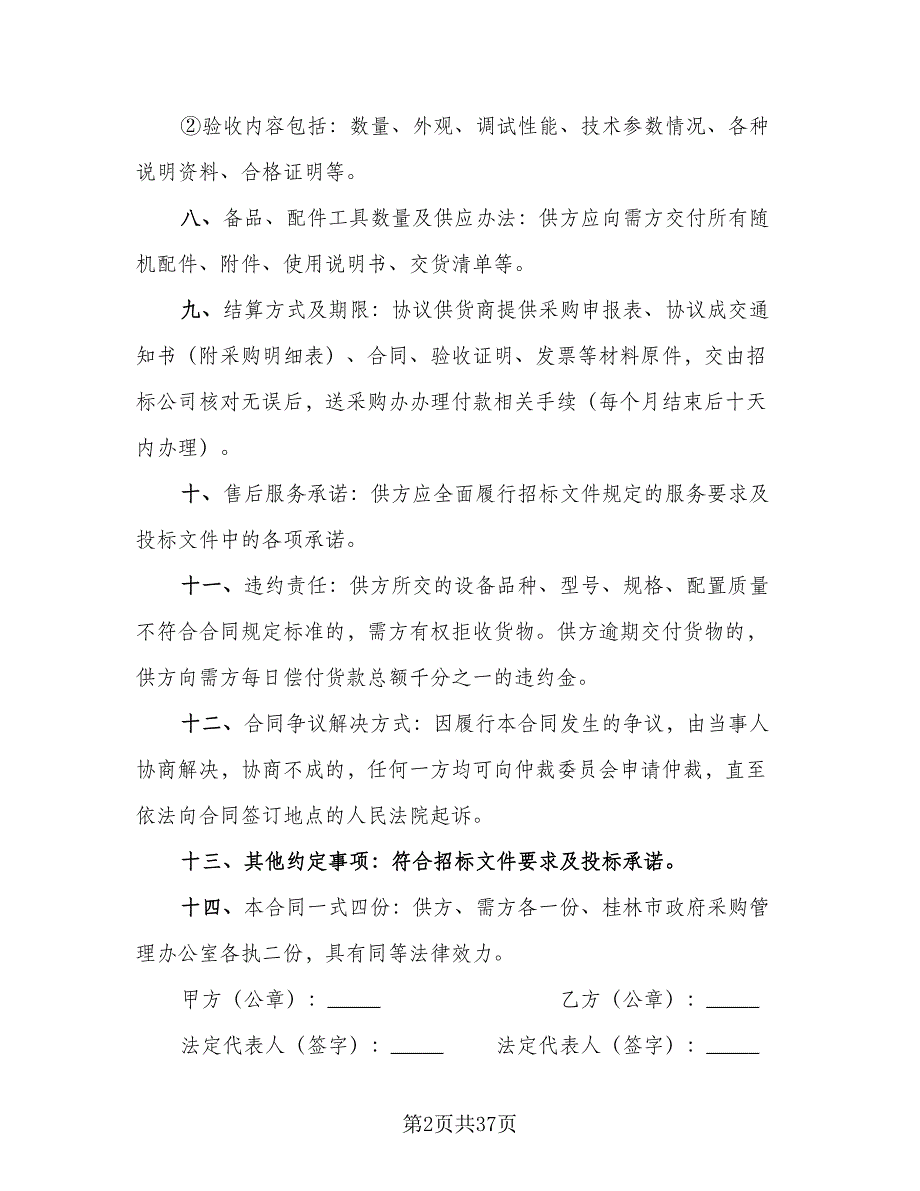 ②验收内容包括：数量、外观、调试性能、技术参数情况、各种
说明资料、合格证明等。
八、备品、配件工具数量及供应办法：供方应向需方交付所有随
机配件、附件、使用说明书、交货清单等。
九、结算方式及期限：协议供货商提供采购申报表、协议成交通
知书（附采购明细表）、合同、验收证明、发票等材料原件，交由招
标公司核对无误后，送采购办办理付款相关手续（每个月结束后十天
内办理）。
十、售后服务承诺：供方应全面履行招标文件规定的服务要求及
投标文件中的各项承诺。
十一、违约责任：供方所交的设备品种、型号、规格、配置质量
不符合合同规定标准的，需方有权拒收货物。供方逾期交付货物的，
供方向需方每日偿付货款总额千分之一的违约金。
十二、合同争议解决方式：因履行本合同发生的争议，由当事人
协商解决，协商不成的，任何一方均可向仲裁委员会申请仲裁，直至
依法向合同签订地点的人民法院起诉。
十三、其他约定事项：符合招标文件要求及投标承诺。
十四、本合同一式四份：供方、需方各一份、桂林市政府采购管
理办公室各执二份，具有同等法律效力。
甲方（公章）：_____ 乙方（公章）：_____
法定代表人（签字）：_____ 法定代表人（签字）：_____
第2页共37页